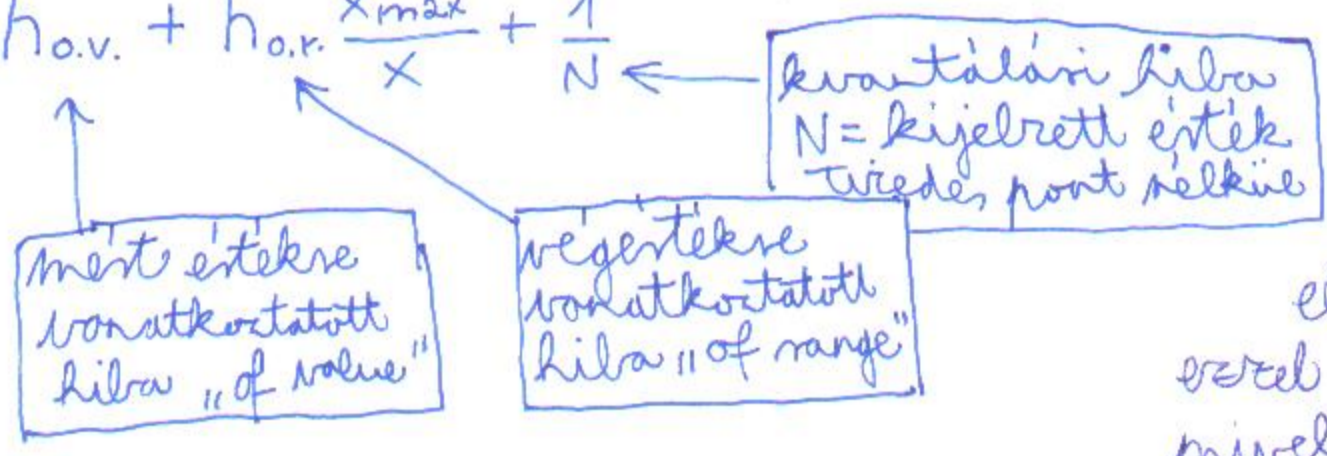 h o.v. + h o.r. xmax/x + 1/N
kvantálási hiba
N = kijelzett érték
tizedes pont nélkül
mért értékre
vonatkoztatott
hiba „of value"
végértékre
vonatkoztatott
hiba „of range"
ezzel
mivel